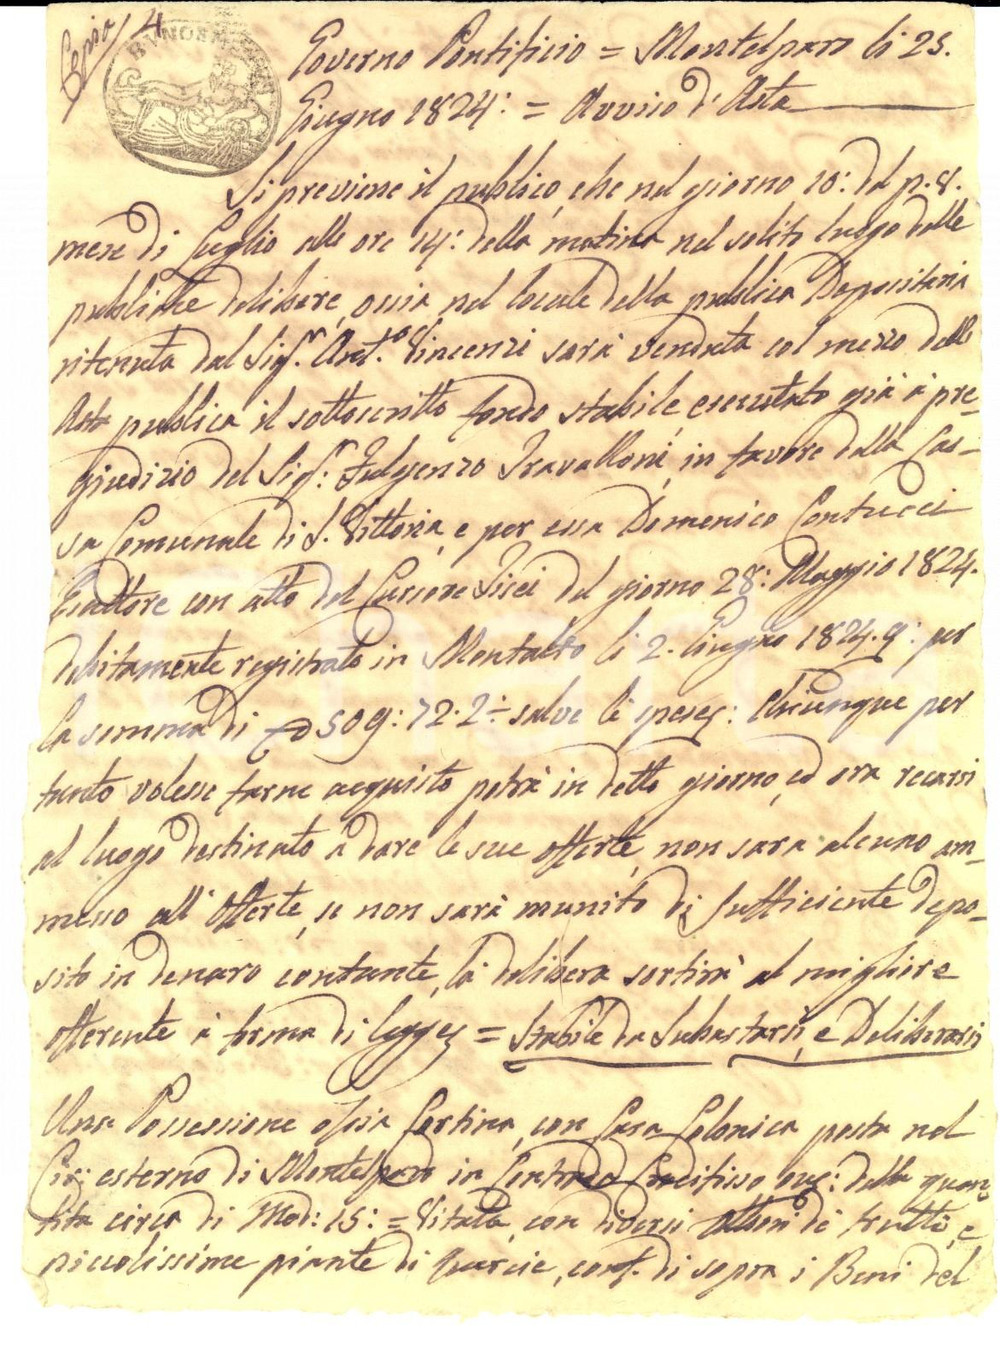 Copia / 4
BUNOSMEMET
Governo Pontificio = Montelparo li 25.
Giugno 1824: = Avviso d'Asta
Si previene il publico, che nel giorno 10: del p. v.
mese di Luglio alle ore 14: della matina nel solito luogo delle
pubbliche delibere, ossia nel locale della pubblica Depositaria
ritenuta dal Sig.r Ant.o Vincenzi sarà venduta col mezzo delle
Asta pubblica il sottoscritto fondo stabile esecutato già à pre-
giudizio del Sig.r Fulgenzo Travalloni, in favore della Cas-
sa Comunale di S. Vittoria, e per essa Domenico Contucci
Esattore con atto del Cursore Visei del giorno 28: Maggio 1824.
debitamente registrato in Montalto li 2. Giugno 1824. q: per
la somma di 509: 72. 2 :- salve le spese: Chiunque per
tanto volesse farne acquisto potrà in detto giorno, ed ora recarsi
al luogo destinato à dare le sue offerte, non sara alcuno am-
messo all'offerte, se non sarà munito di sufficiente depo-
sito in denaro contante, la delibera sortirà al migliore
offerente à forma di legge = Stabile da Subastarsi, e Deliberarsi
Una Possessione ossia Cortina, con Casa Colonica posta nel
esterno di Montelparo in Contrada Crocifisso della quan-
tita circa di Mod: 15: = Vitata, con diversi alberi di frutti, e
piccolissime piante di Quercie, conf. di sopra i Beni del